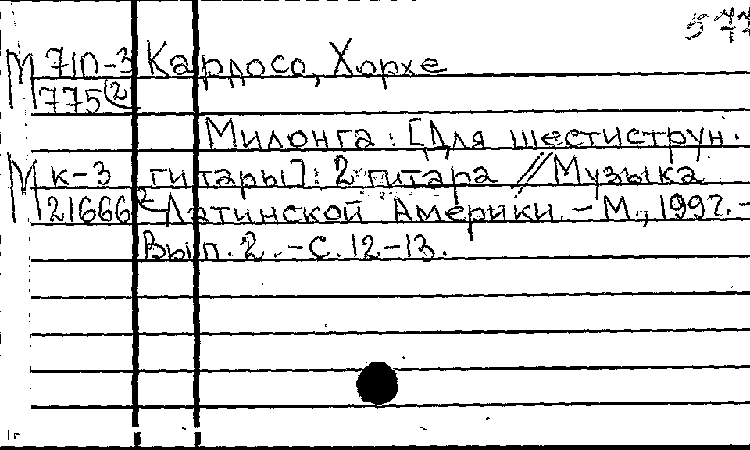 577
М 7IП-3 Кардосо, Хорхе
775(2)
Милонга: [Для шестиструн.
М к-3 гитары]: 2 гитара // Музыка
121666 2 Латинской Америки. - М., 1997. -
Вып. 2. - С. 12-13.